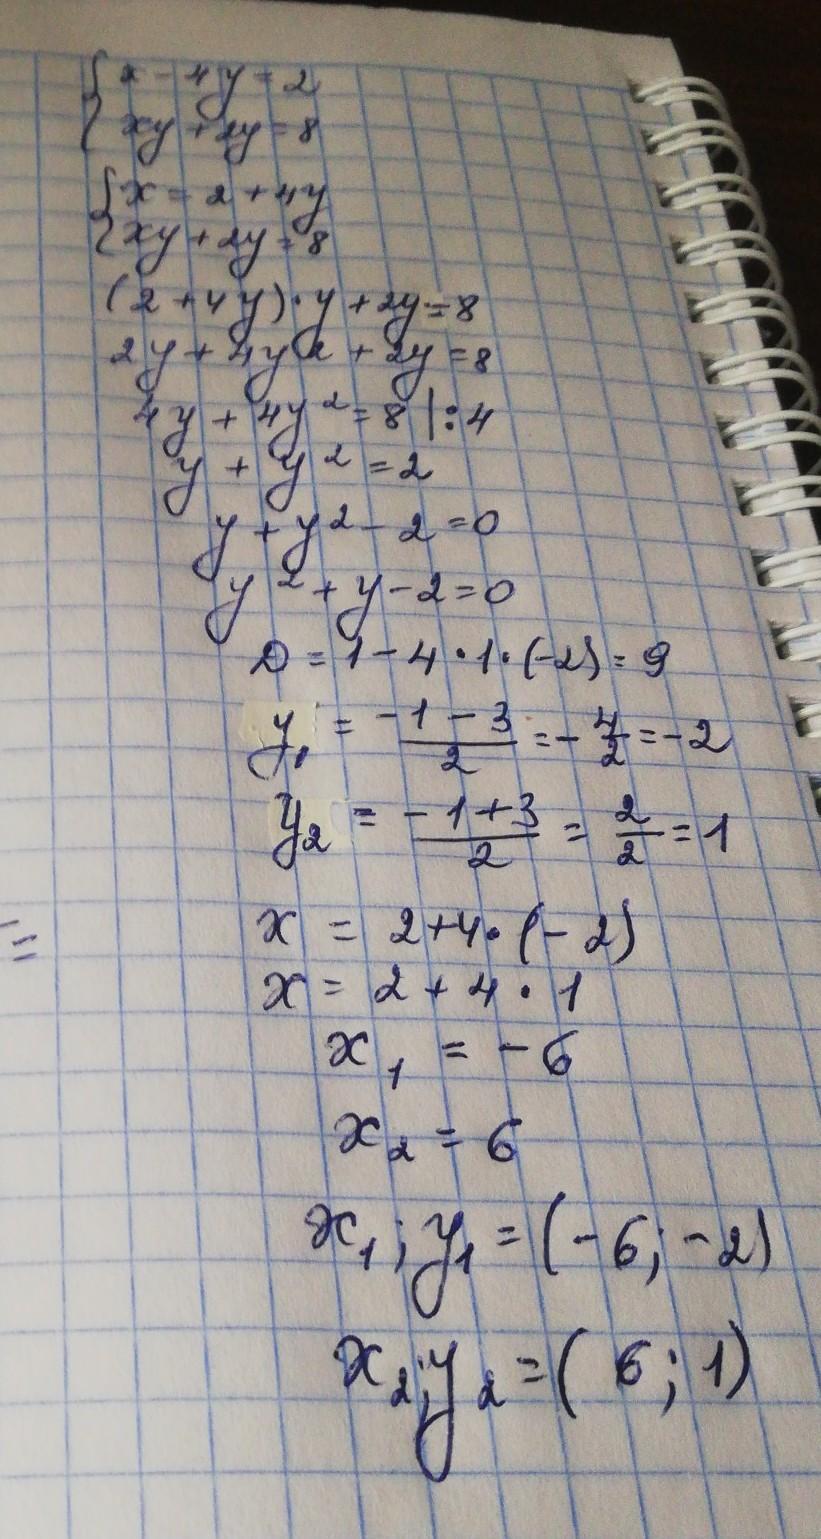 { x - 4y = 2
xy + 2y = 8
{ x = 2 + 4y
xy + 2y = 8
(2 + 4y) · y + 2y = 8
2y + 4y² + 2y = 8
4y + 4y² = 8 | : 4
y + y² = 2
y + y² - 2 = 0
y² + y - 2 = 0
D = 1 - 4 · 1 · (-2) = 9
y₁ = (-1 - 3)/2 = -4/2 = -2
y₂ = (-1 + 3)/2 = 2/2 = 1
x = 2 + 4 · (-2)
=
x = 2 + 4 · 1
x₁ = -6
x₂ = 6
x₁; y₁ = (-6; -2)
x₂; y₂ = (6; 1)